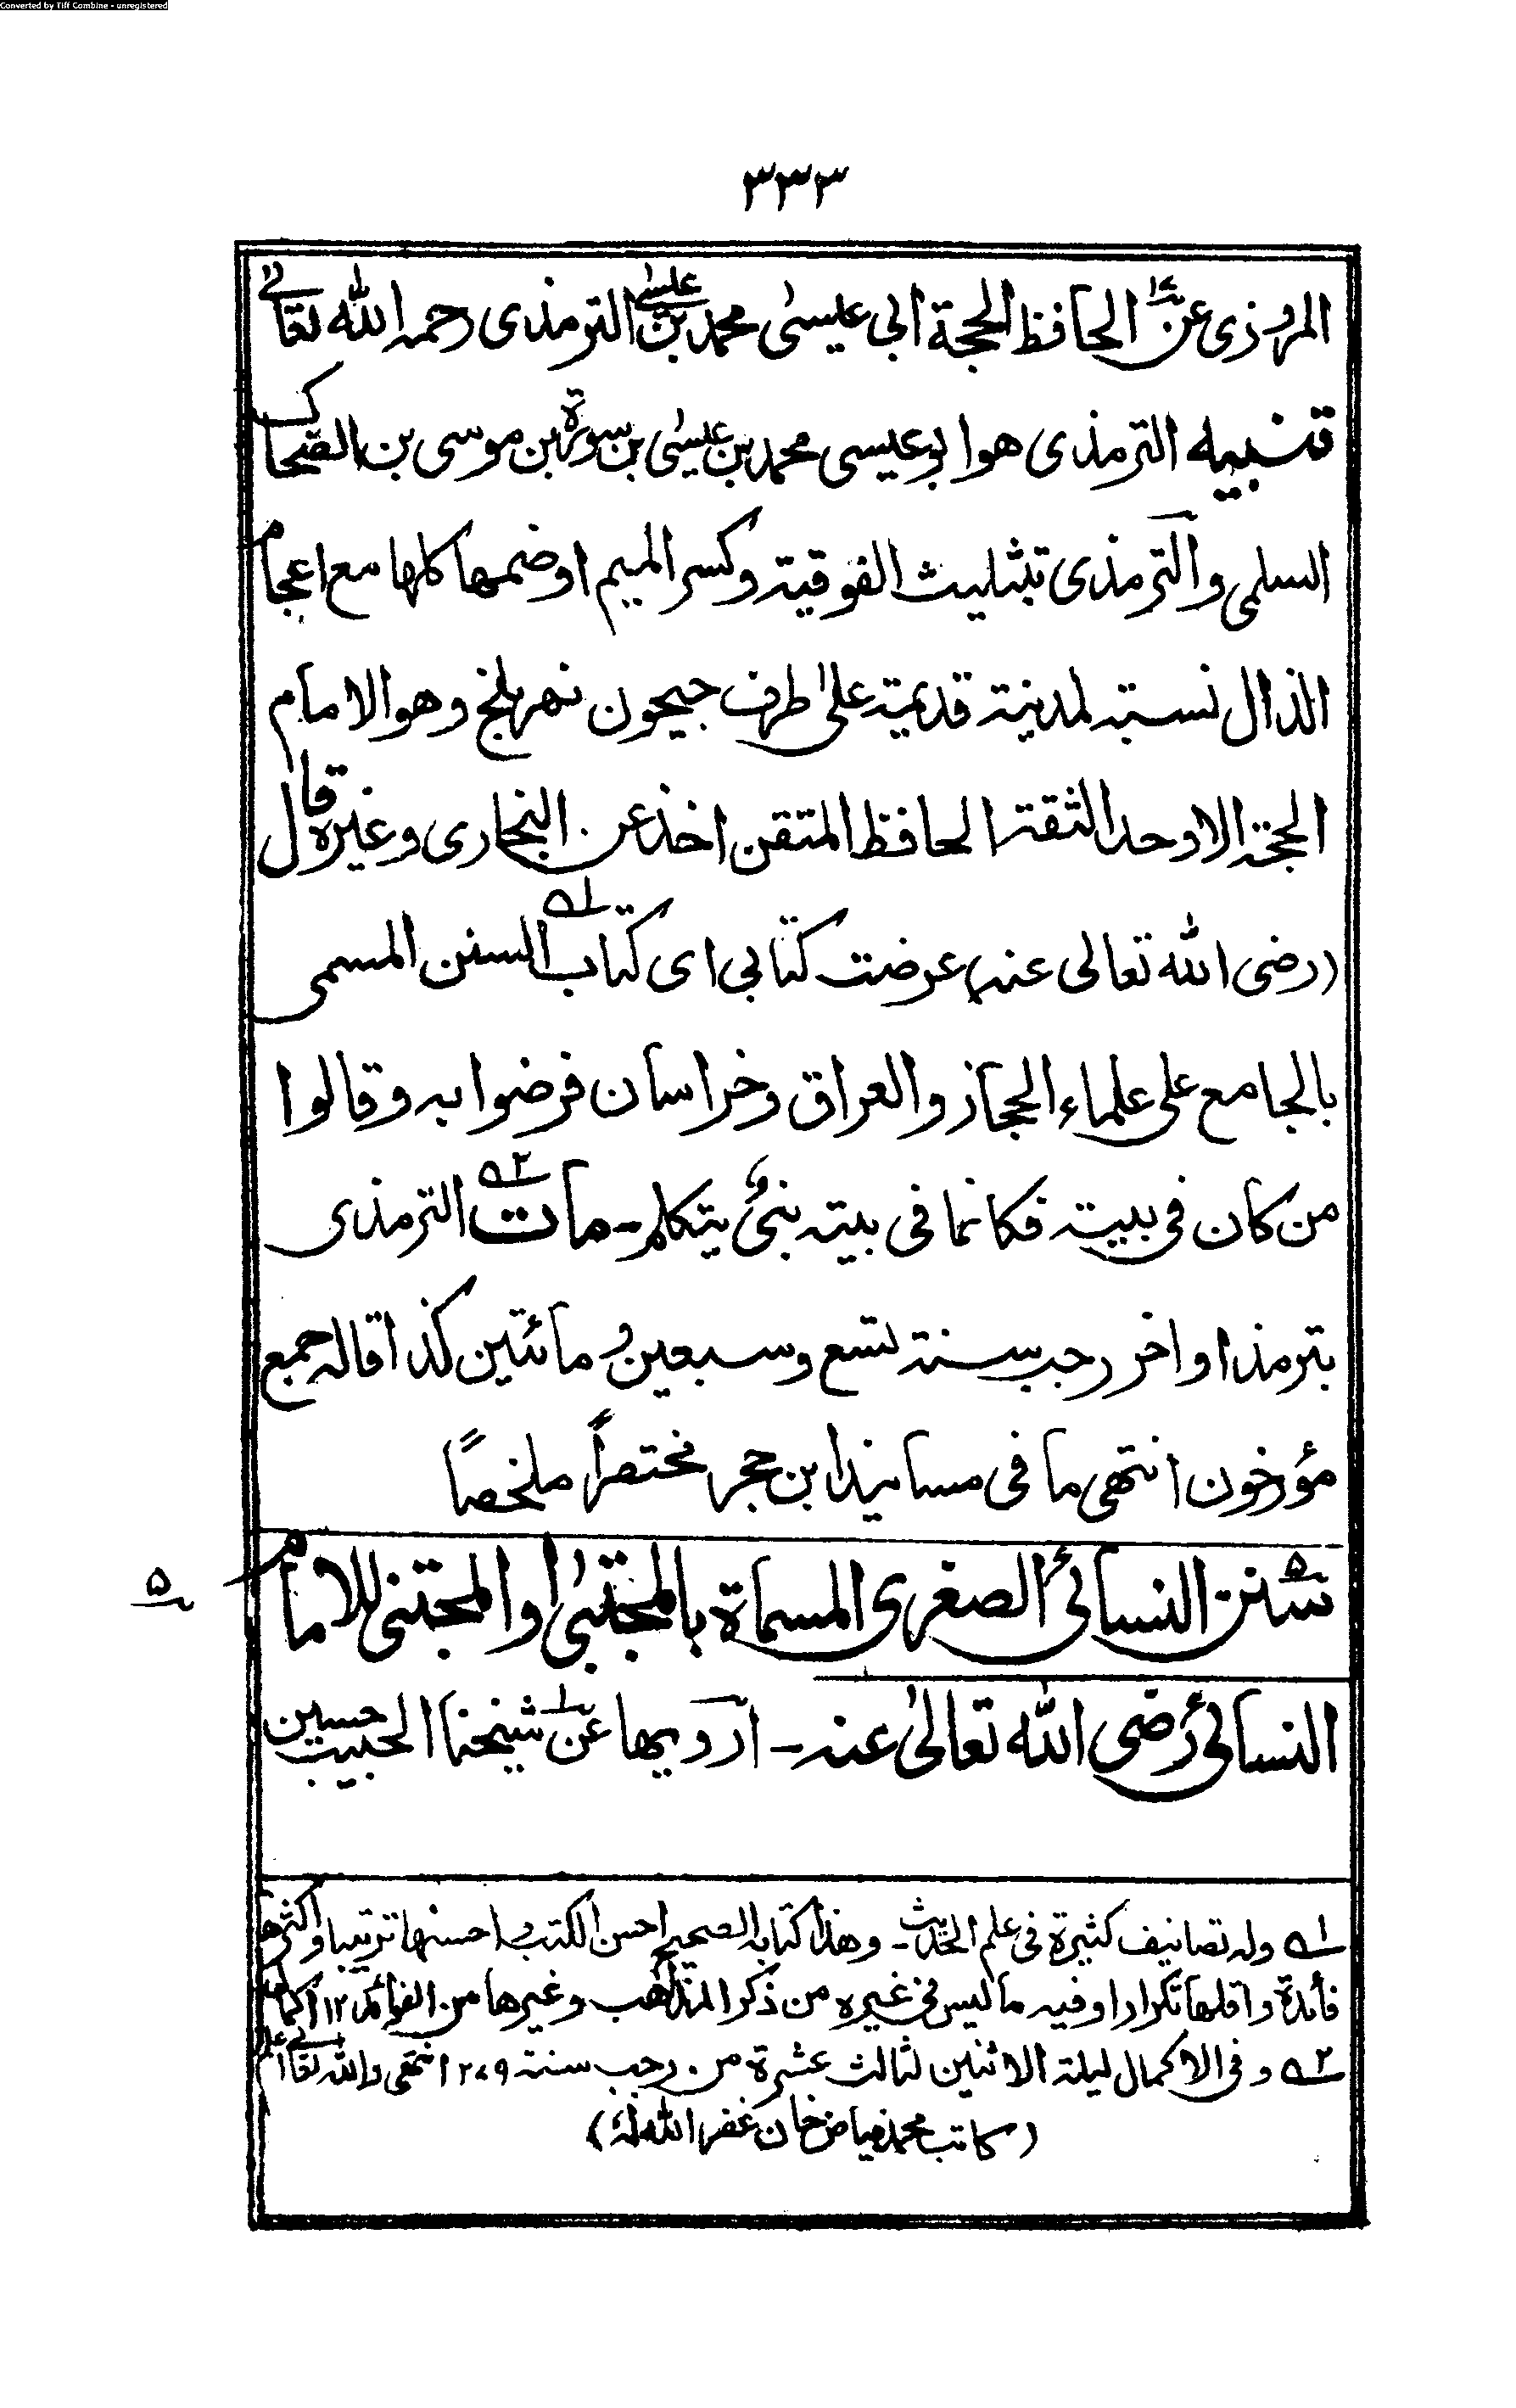 Converted by Tiff Combine - unregistered
٣٣٣
المروزى عن١٤ الحافظ الحجة ابى عيسىٰ محمد بن عيسىٰ الترمذى رحمه الله تعالىٰ
تنبيه الترمذى هو ابو عيسى محمد بن عيسىٰ بن سورة بن موسى بن الضحاك
السلمى والترمذى بتثليث الفوقية وكسر الميم او ضمها كلها مع اعجام
الذال نسبة لمدينة قديمة علىٰ طرف جيحون نهر بلخ وهو الامام
الحجة الاوحد الثقة الحافظ المتقن اخذ عن البخارى وغيره قال
(رضى الله تعالى عنه) عرضت كتابى اى كتاب السنن ؁١ المسمى
بالجامع على علماء الحجاز والعراق وخراسان فرضوا به وقالوا
من كان فى بيته فكانما فى بيته نبىٌ يتكلم ــ مات ؁٢ الترمذى
بترمذ اواخر رجب سنة تسع وسبعين ومائتين كذا قاله جمع
مؤرخون انتهى ما فى مسانيد ابن حجر مختصراً ملخصًا
٥
سنن النسائى الصغرى المسماة بالمجتبىٰ او المجتنى للامام
النسائى رضى الله تعالىٰ عنه ــ ارويها عن١ شيخنا الحبيب حسين
؁١ وله تصانيف كثيرة فى علم الحديث ــ وهذا كتابه الصحيح احسن الكتب واحسنها ترتيبا واكثرها
فائدة واقلها تكرارا وفيه ما ليس فى غيره من ذكر المذاهب وغيرها من الفوائد ١٢ اكمال
؁٢ وفى الاكمال ليلة الاثنين لثالث عشرة من رجب سنة ٢٧٩ انتهى والله تعالىٰ اعلم
(كاتب محمد فياض خان غفر الله لهٗ)